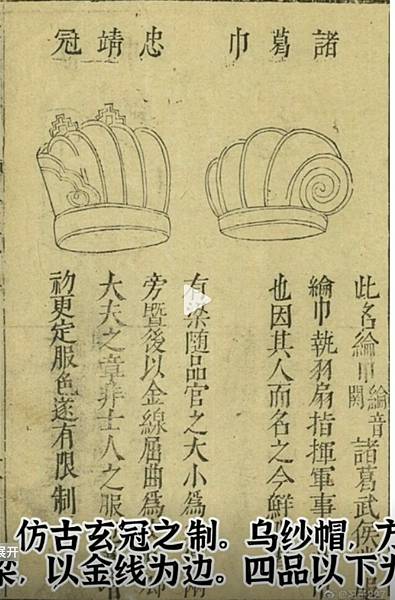 諸葛巾
此名綸巾綸音關諸葛武侯
綸巾執羽扇指揮軍事
也因其人而名之今鮮
忠靖冠
有梁隨品官之大小爲
旁暨後以金線屈曲爲
大夫之章非士人之服
初更定服色遂有限制
展开
仿古玄冠之制。乌纱帽，方
梁，以金线为边。四品以下为